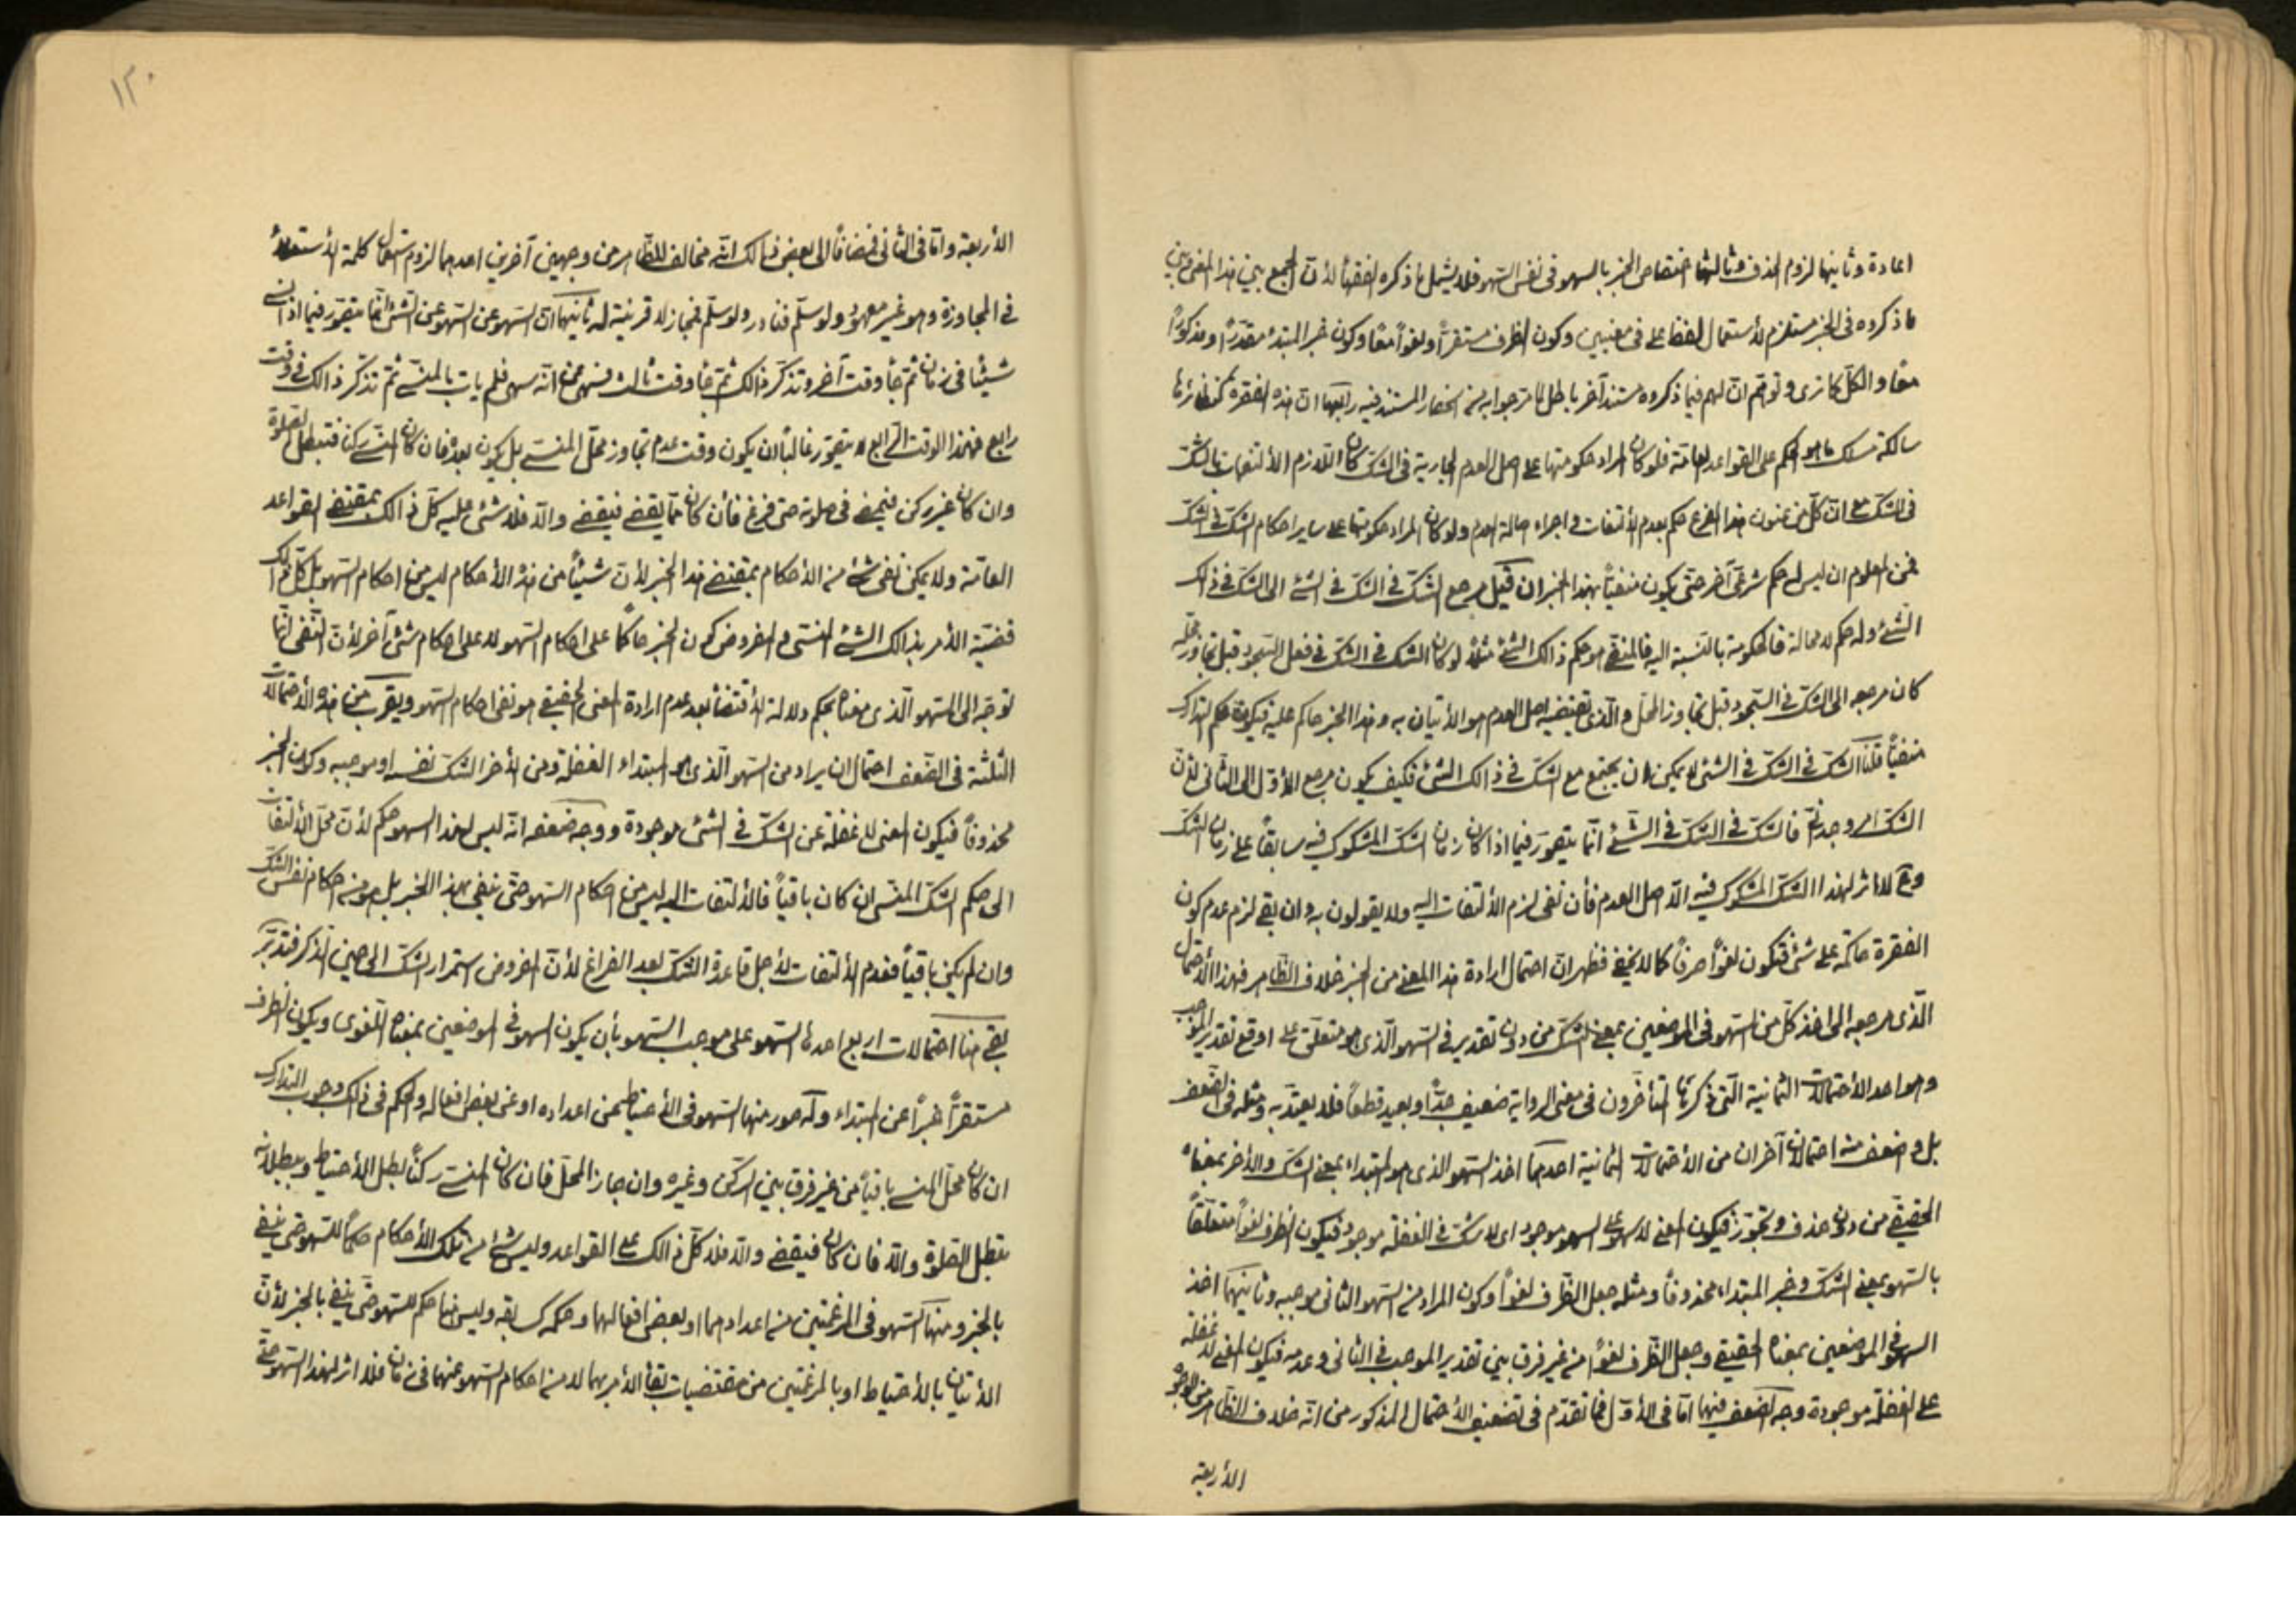 اعادة وثانيها لزوم الحذف وثالثها اختصاص الخبر بالسهو فى نفس السهو فلا يشمل ما ذكره الفقهاء لأن الجمع بين هذا المعنى وبين
ما ذكروه فى الخبر مستلزم لأستعمال لفظ على فى معنيين وكون الظرف مستقراً ولغواً معًا وكون خبر المبتدء مقدرًا ومذكورًا
معًا والكل كما ترى وتوهم ان لهم فيما ذكروه مستند آخر باطل لما مر جوابه من انحصار المستند فيه رابعها ان هذه الفقرة كنظائرها
سالكة مسلك ما هو الحكم على القواعد العامة فلو كان المراد حكومتها على اصل العدم الجارية فى الشك كان اللازم الألتفات بالشك
فى الشك مع ان كل من عنون هذا الفرع حكم بعدم الألتفات واجراء اصالة العدم ولو كان المراد حكومتها على ساير احكام الشك فى الشك
فمن المعلوم ان ليس له حكم شرعى آخر حتى يكون منفياً بهذا الخبر ان قيل مرجع الشك فى الشك فى الشئ الى الشك فى ذلك
الشئ وله حكم لا محالة فالحكومة بالنسبة اليه فالمنفى هو حكم ذالك الشئ مثلاً لو كان الشك فى الشك فى فعل السجود قبل تجاوز محله
كان مرجعه الى الشك فى السجود قبل تجاوز المحل والذى يقتضيه اصل العدم هو الأتيان به وهذا الخبر حاكم عليه فيكون حكم التدارك
منفياً قلنا الشك فى الشك فى الشئ لا يمكن ان يجتمع مع الشك فى ذالك الشئ فكيف يكون مرجع الأول الى الثانى لأن
الشك امر وجدانى فالشك فى الشك فى الشئ انما يتصور فيما اذا كان زمان الشك المشكوك فيه سابقاً على زمان الشك
وح لا اثر لهذا الشك المشكوك فيه الا اصل العدم فأن نفى لزم الألتفات اليه ولا يقولون به وان بقى لزم عدم كون
الفقرة حاكمة على شئ فتكون لغواً صرفاً كما لا يخفى فظهر ان احتمال ارادة هذا المعنى من الخبر خلاف الظاهر فهذا الأحتمال
الذى مرجعه الى اخذ كل من السهو فى الموضعين بمعنى الشك من دون تقدير فى السهو الذى هو متعلق على او مع تقدير الموجب
وهو احد الأحتمالات الثمانية التى ذكرها المتأخرون فى معنى الرواية ضعيف جدًّا وبعيد قطعاً فلا يعتد به ومثله فى الضعف
بل واضعف منه احتمالان آخران من الأحتمالات الثمانية احدهما اخذ السهو الذى هو المبتداء بمعنى الشك والأخر بمعناه
الحقيقى من دون حذف وتجوز فيكون المعنى لا سهو على السهو موجود اى لا شك فى الغفلة موجود فيكون الظرف لغواً متعلقاً
بالسهو بمعنى الشك وخبر المبتداء محذوفاً ومثله جعل الظرف لغواً وكون المراد من السهو الثانى موجبه وثانيهما اخذ
السهو فى الموضعين بمعناه الحقيقى وجعل الظرف لغواً من غير فرق بين تقدير الموجب فى الثانى وعدمه فيكون المعنى لا غفلة
على الغفلة موجودة وجه الضعف فيهما اما فى الأول فما تقدم فى تضعيف الأحتمال المذكور من انه خلاف الظاهر من الوجوه
الأربعة
١٢٠
الأربعة واما فى الثانى فمضافاً الى بعض ذالك انه مخالف للظاهر من وجهين آخرين احدهما لزوم استعمال كلمة الأستعلاء
فى المجاوزة وهو غير معهود ولو سلم فنادر ولو سلم فمجاز لا قرينة له ثانيهما ان السهو عن السهو عن الشئ انما يتصور فيما اذا نسى
شيئًا فى زمان ثم جاء وقت آخر وتذكر ذالك ثم جاء وقت ثالث فسهى عن انه سهى فلم يات بالمنسى ثم تذكر ذالك فى وقت
رابع فهذا الوقت الرابع لا يتصور غالبًا ان يكون وقت عدم تجاوز محل المنسى بل يكون بعده فان كان المنسى ركنا فتبطل الصلوة
وان كان غير ركن فيمضى فى صلوته حتى فرغ فأن كان مما يقضى فيقضى والا فلا شئ عليه كل ذالك بمقتضى القواعد
العامة ولا يمكن نفى شئ من الأحكام بمقتضى هذا الخبر لأن شيئاً من هذه الأحكام ليس من احكام السهو بل كل ذالك
قضية الأمر بذالك الشئ المنسى والمفروض كون الخبر حاكمًا على احكام السهو لا على احكام شئ آخر لأن النفى انما
توجه الى السهو الذى معناه بحكم دلالة الأقتضاء بعد عدم ارادة المعنى الحقيقى هو نفى احكام السهو ويقرب من هذه الأحتمالات
الثلثة فى الضعف احتمال ان يراد من السهو الذى هو المبتداء الغفلة ومن الأخر الشك نفسه او موجبه وكون الخبر
محذوفاً فيكون المعنى لا غفلة عن الشك فى الشئ موجودة ووجه ضعفه انه ليس لهذا السهو حكم لأن محل الألتفات
الى حكم الشك المنسى ان كان باقياً فالألتفات اليه ليس من احكام السهو حتى ينفى بهذا الخبر بل هو من احكام نفس الشك
وان لم يكن باقياً فعدم الألتفات لأجل قاعدة الشك بعد الفراغ لأن المفروض استمرار الشك الى حين التذكر فتدبر
بقى هنا احتمالات اربع احدها السهو على موجب السهو بأن يكون السهو فى الموضعين بمعناه اللغوى ويكون الظرف
مستقراً خبراً عن المبتداء وله صور منها السهو فى الأحتياط عن اعداده او عن بعض افعاله والحكم فى ذلك وجوب التدارك
ان كان محل المنسى باقياً من غير فرق بين الركن وغيره وان جاز المحل فان كان المنسى ركنًا بطل الأحتياط وببطلانه
تبطل الصلوة والا فان كان فيقضى والا فلا كل ذالك على القواعد وليس شئ من تلك الأحكام حكمًا للسهو حتى ينفى
بالخبر ومنها السهو فى المرغمتين من اعدادهما او بعض افعالهما وحكمه كسابقه وليس هنا حكم للسهو حتى ينفى بالخبر لأن
الأتيان بالأحتياط او بالمرغمتين من مقتضيات بقاء الأمر بهما لا من احكام السهو عنهما فى زمان فلا اثر لهذا السهو حتى